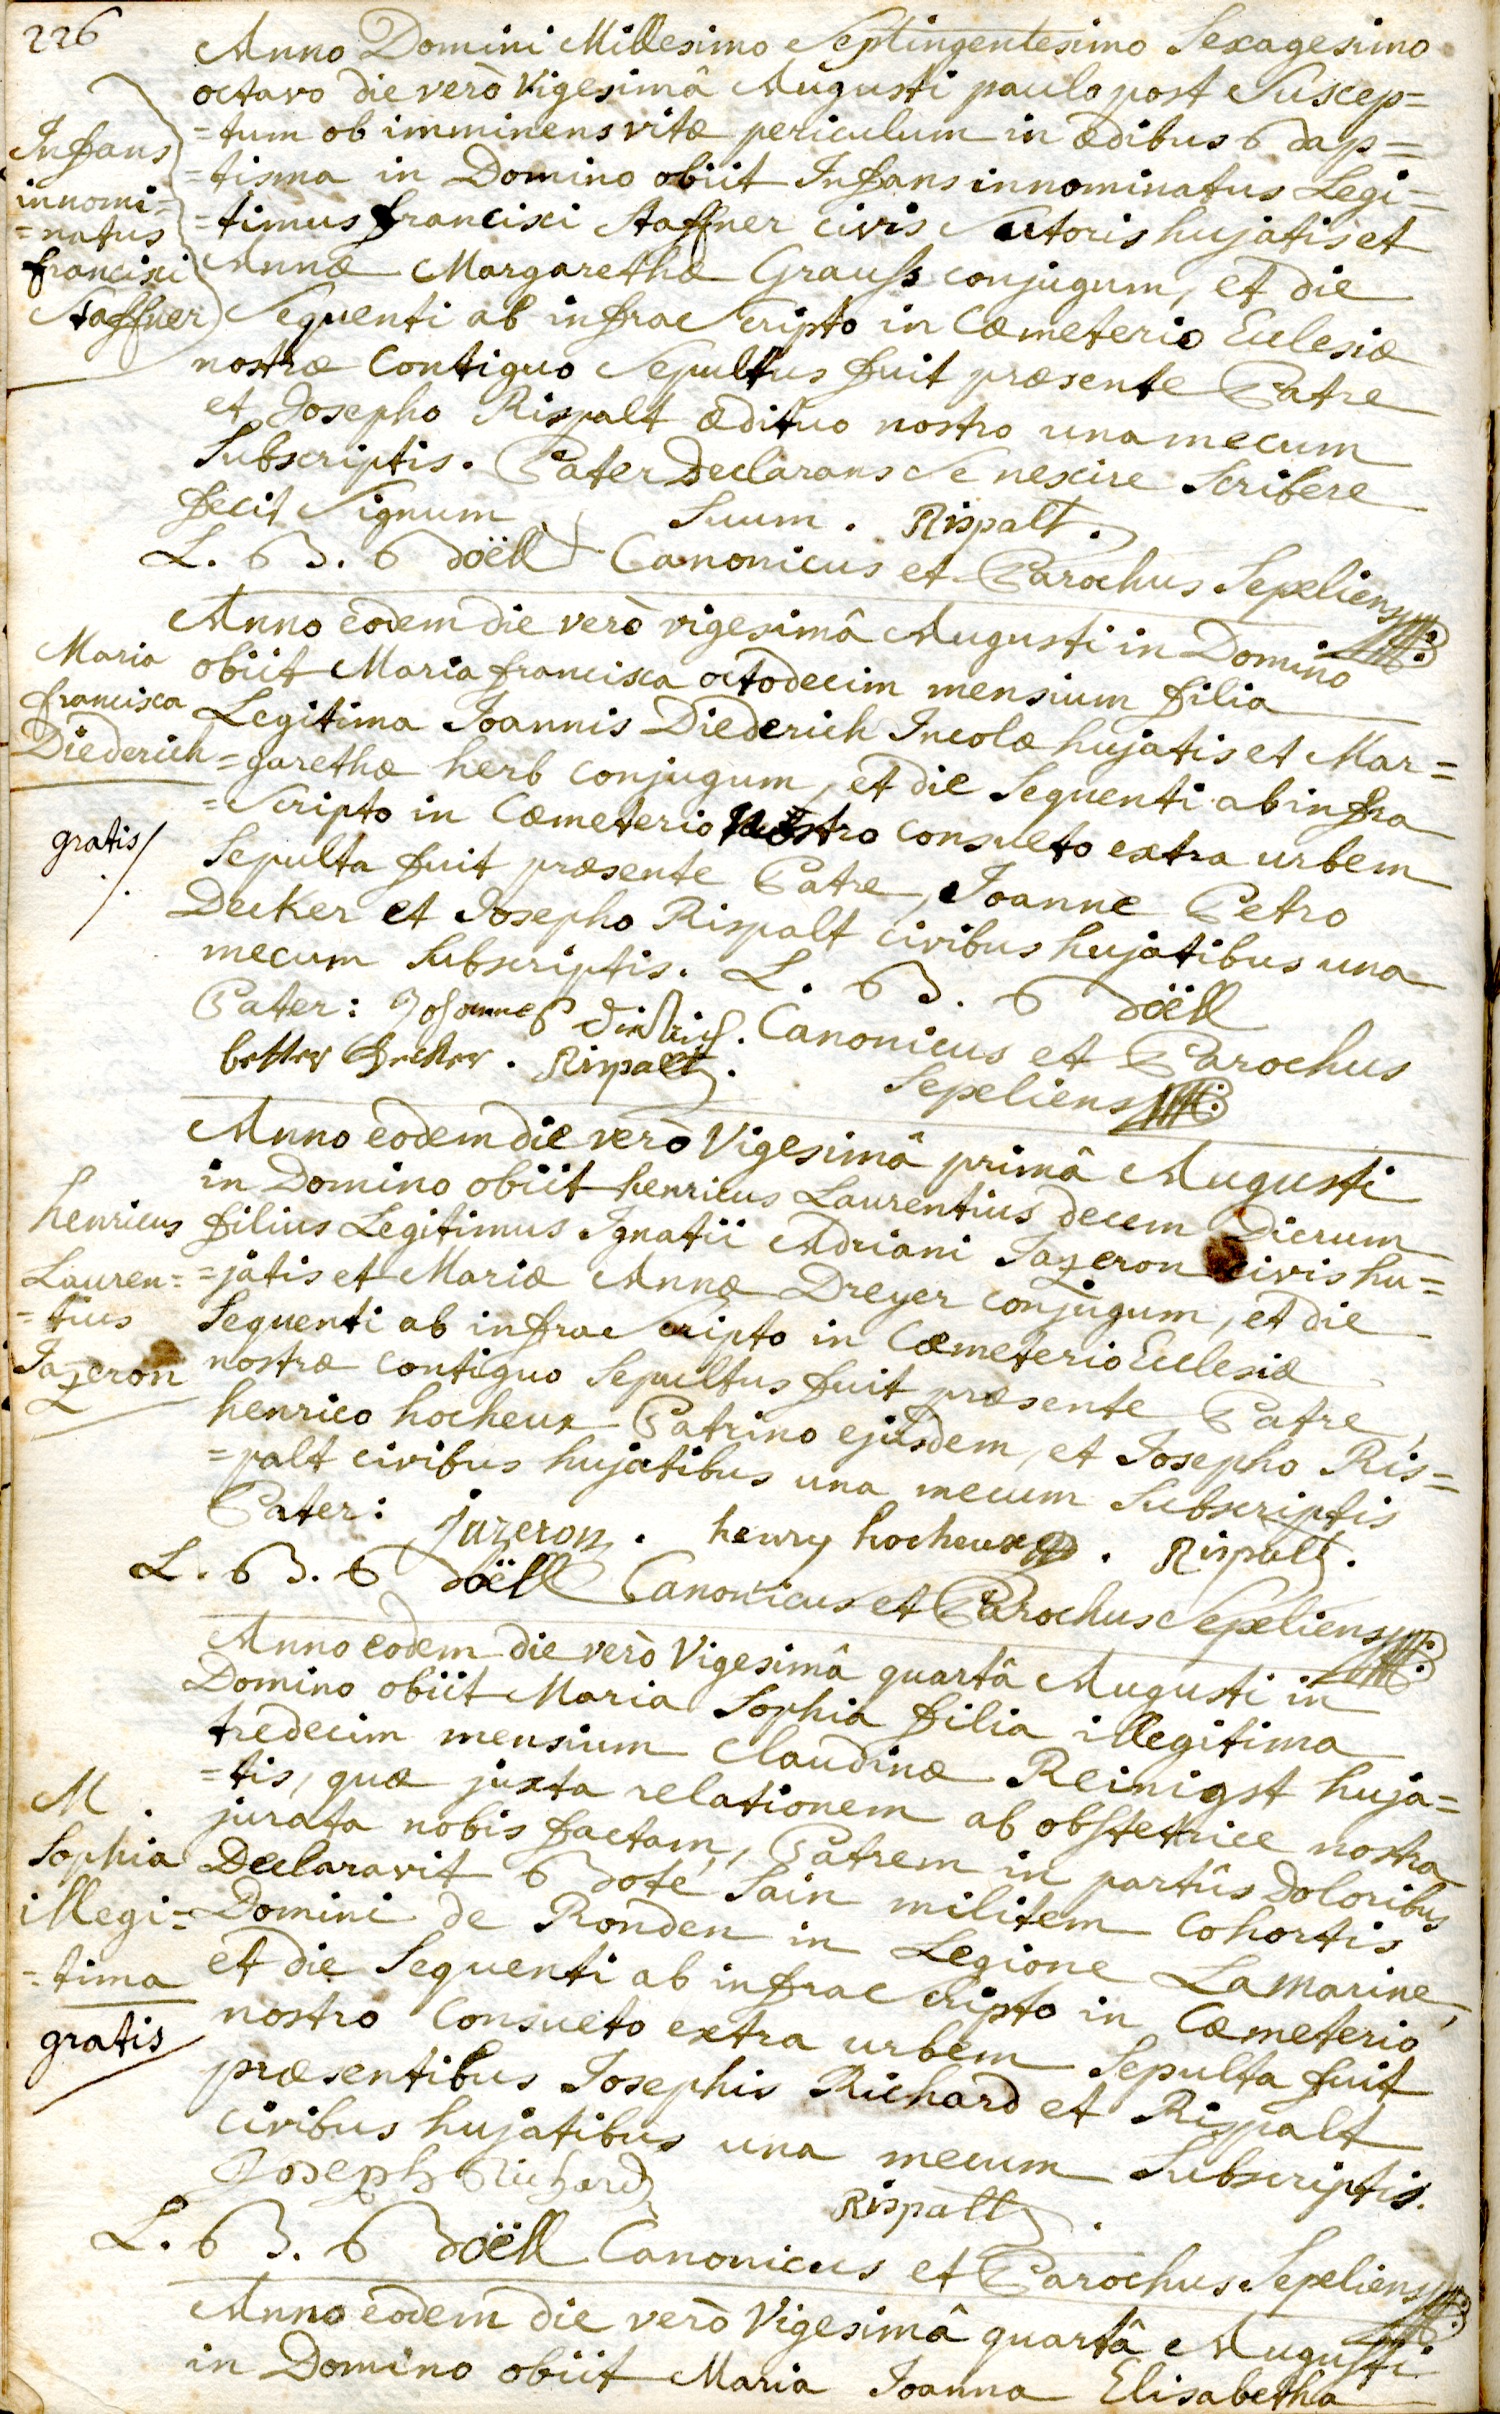 226
Anno Domini Millesimo Septingentesimo Sexagesimo
octavo die verò Vigesimâ Augusti paulo post Suscep=
=tum ob imminens vitæ periculum in ædibus Bap=
=tisma in Domino obiit Infans innominatus Legi=
=timus francisci Staffner civis Sutoris hujatis et
Annæ Margarethæ Grauss conjugum, et die
Sequenti ab infrascripto in Cæmeterio Ecclesiæ
nostræ Contiguo Sepultus fuit præsente Patre
et Josepho Rispalt ædituo nostro una mecum
Subscriptis. Pater Declarans Se nescire Scribere
fecit Signum Suum. Rispalt.
L. B. Boëll Canonicus et Parochus Sepeliens
Infans
innomi=
=natus
francisci
Staffner
Anno eodem die verò vigesimâ Augusti in Domino
obiit Maria francisca octodecim mensium filia
Legitima Joannis Diederich Incolæ hujatis et Mar=
=garethæ herb conjugum, et die Sequenti ab infra
=Scripto in Cæmeterio Nostro consueto extra urbem
Sepulta fuit præsente Patre, Joanne Petro
Decker et Josepho Rispalt civibus hujatibus una
mecum Subscriptis. L. B. Boëll
Pater: Johannes Dietrich. Canonicus et Parochus
better Decker. Rispalt. Sepeliens
Maria
francisca
Diederich
gratis
Anno eodem die verò Vigesimâ primâ Augusti
in Domino obiit henricus Laurentius decem Dierum
filius Legitimus Ignatii Adriani Jazeron civis hu=
=jatis et Mariæ Annæ Dreyer conjugum, et die
Sequenti ab infrascripto in Cæmeterio Ecclesiæ
nostræ contiguo Sepultus fuit præsente Patre,
henrico hocheux Patrino ejusdem, et Josepho Ris=
=palt civibus hujatibus una mecum Subscriptis
Pater: jazeron. henry hocheux. Rispalt.
L. B. Boëll Canonicus et Parochus Sepeliens
henricus
Lauren=
=tius
Jazeron
Anno eodem die verò Vigesimâ quartâ Augusti in
Domino obiit Maria Sophia filia illegitima
tredecim mensium Claudinæ Reinigst huja=
=tis, quæ juxta relationem ab obstetrice nostra
jurata nobis factam, Patrem in partûs Doloribus
Declaravit Bote Sain militem Cohortis
Domini de Ronden in Legione La Marine,
et die Sequenti ab infrascripto in Cæmeterio
nostro Consueto extra urbem Sepulta fuit
præsentibus Josephis Richard et Rispalt
civibus hujatibus una mecum Subscriptis.
Joseph Richard Rispalt.
L. B. Boëll Canonicus et Parochus Sepeliens
M.
Sophia
illegi=
=tima
gratis
Anno eodem die verò Vigesimâ quartâ Augusti
in Domino obiit Maria Joanna Elisabetha